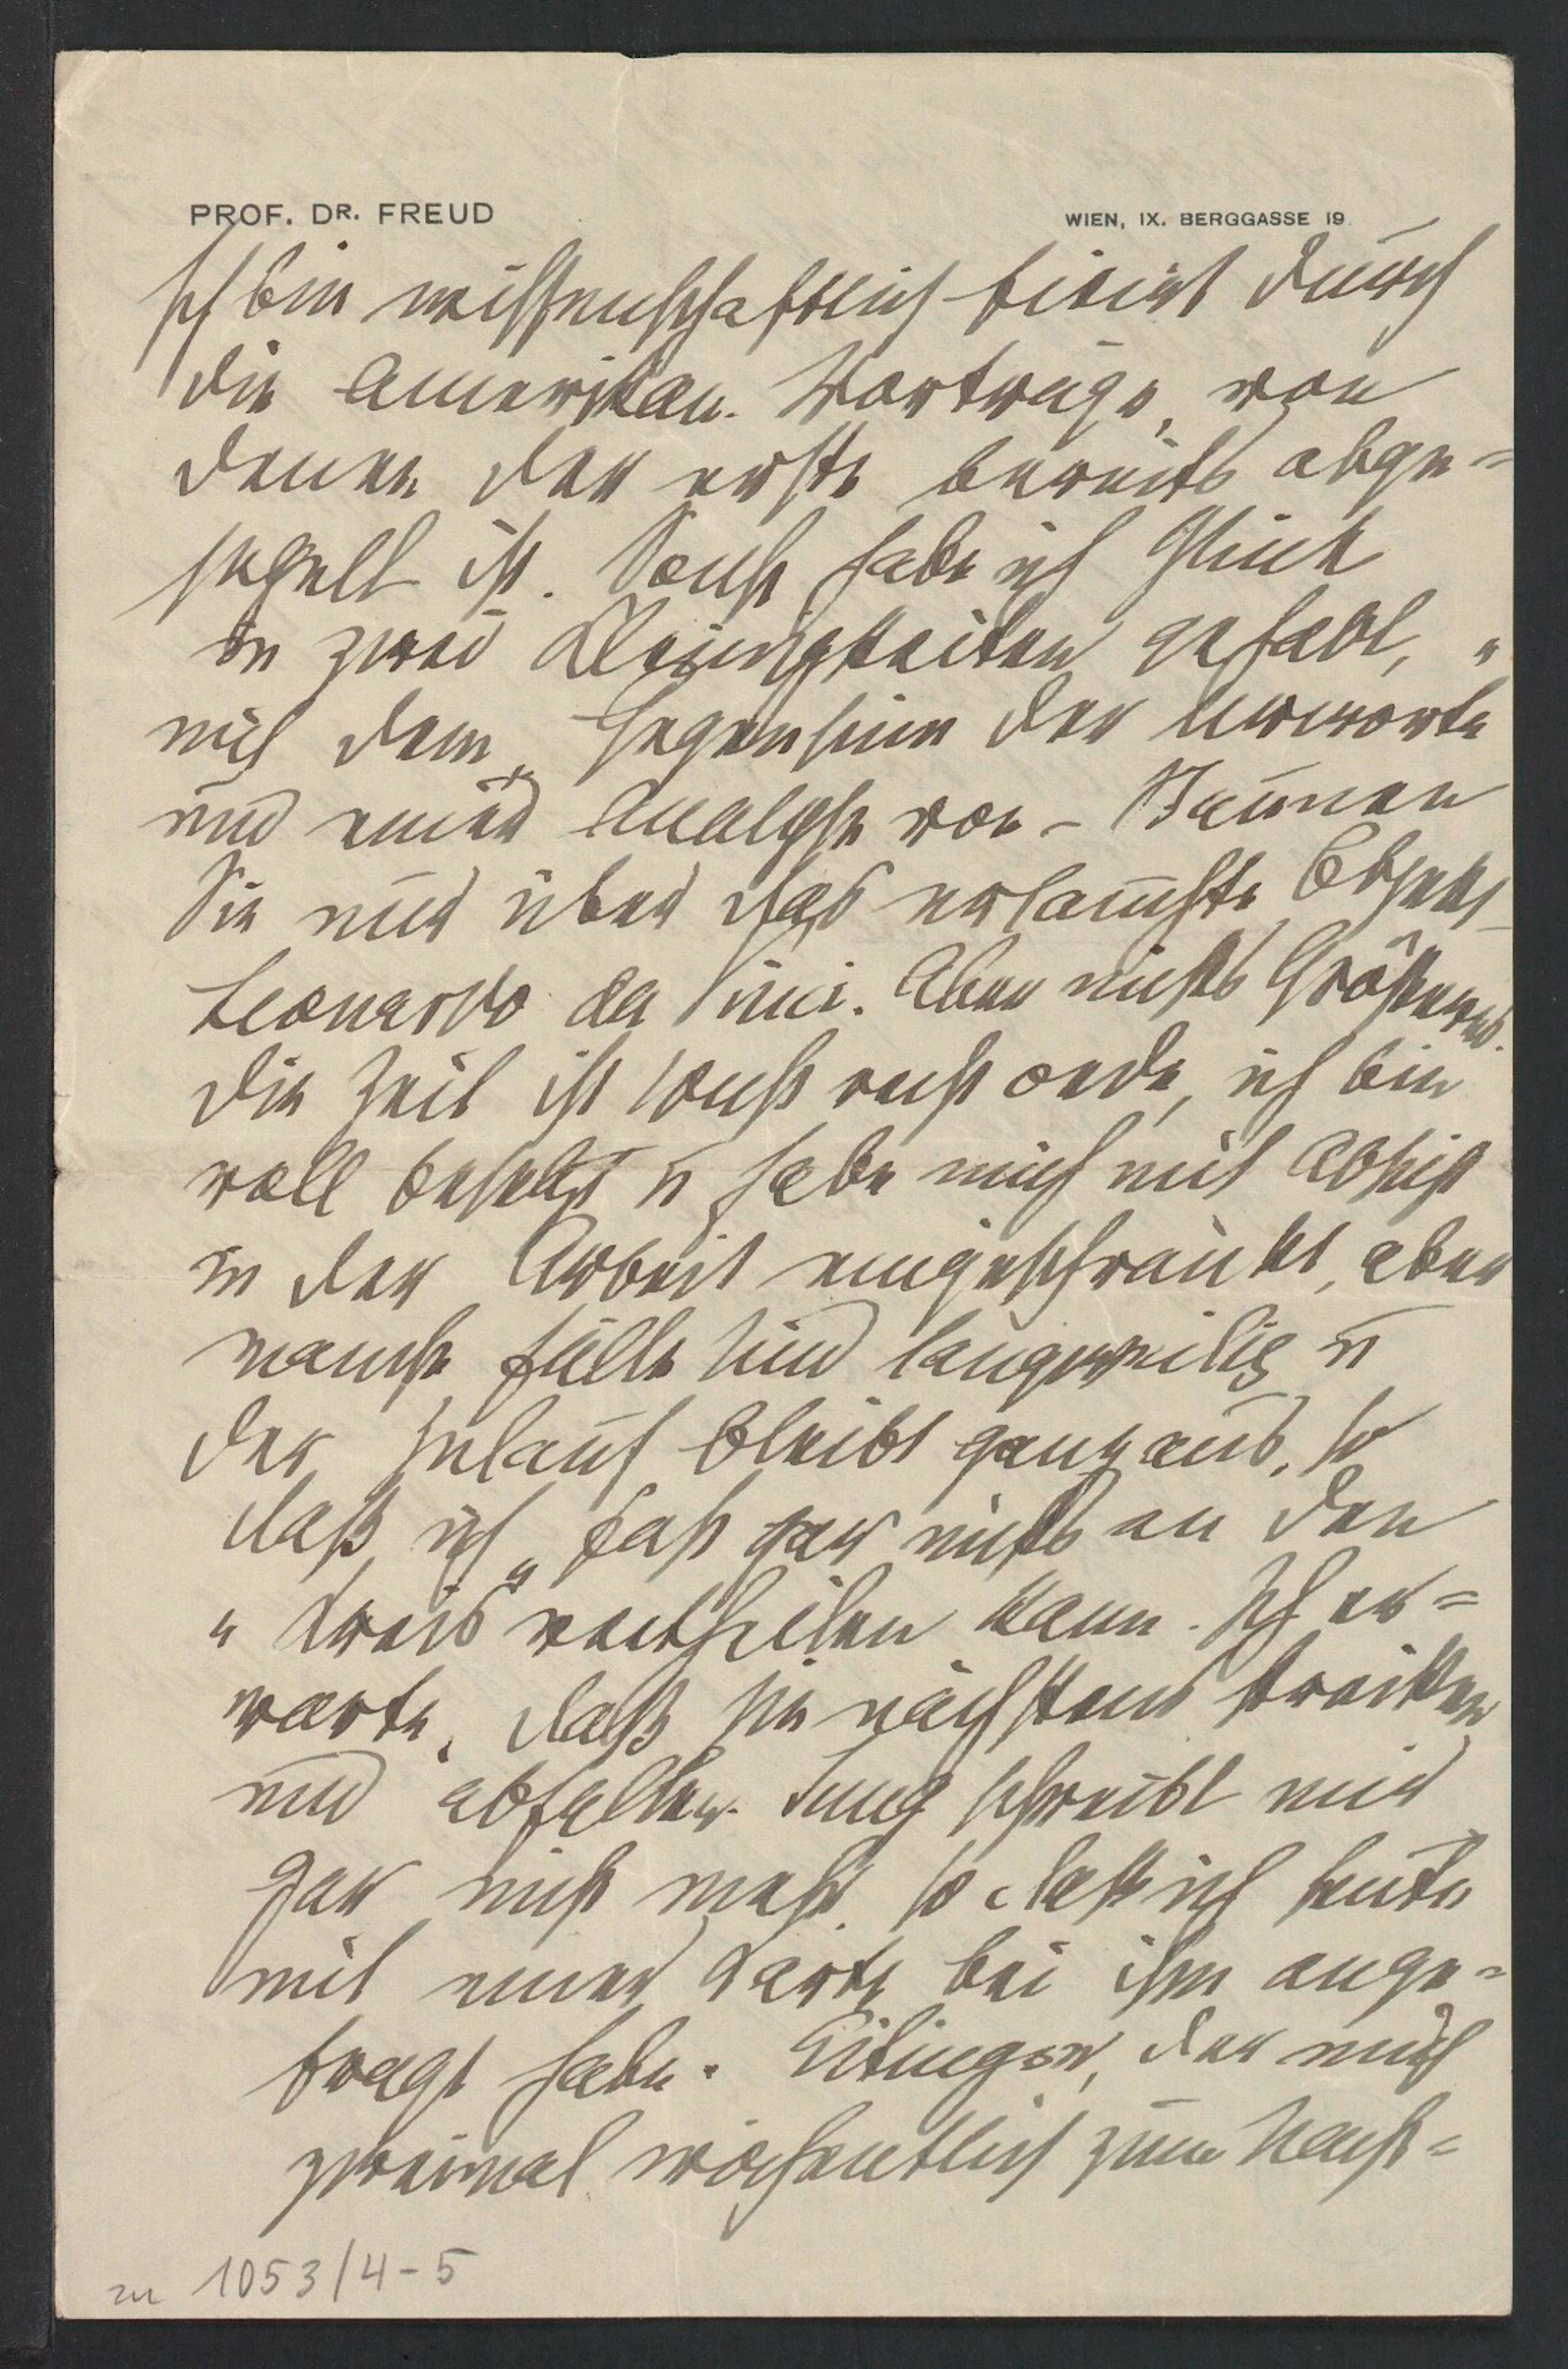 PROF. DR. FREUD
WIEN, IX. BERGGASSE 19
Ich bin wissenschaftlich fixirt durch
die amerikan. Vorträge, von
denen der erste bereits abge=
segelt ist. Sonst habe ich Glück
in zwei Kleinigkeiten gehabt, „
mit dem „Gegensinn der Urworte
und einer Analyse von – Staunen
Sie nur über das erlauchte Objekt –
Leonardo da Vinci. Aber nichts Größeres.
Die Zeit ist sonst recht oede, ich bin
voll besetzt u habe mich mit Absicht
in der Arbeit eingeschränkt, aber
manche Fälle sind langweilig u
der Zulauf bleibt ganz aus, so
daß ich „fast gar nichts an den
„Kreis“ vertheilen kann. Ich er=
warte, daß sie nächstens streiken
und abfallen. Jung schreibt mir
gar nicht mehr, so daß ich heute
mit einer Karte bei ihm ange=
fragt habe. Eitingon, der mich
zweimal wöchentlich zum Nacht=
zu 1053/4-5